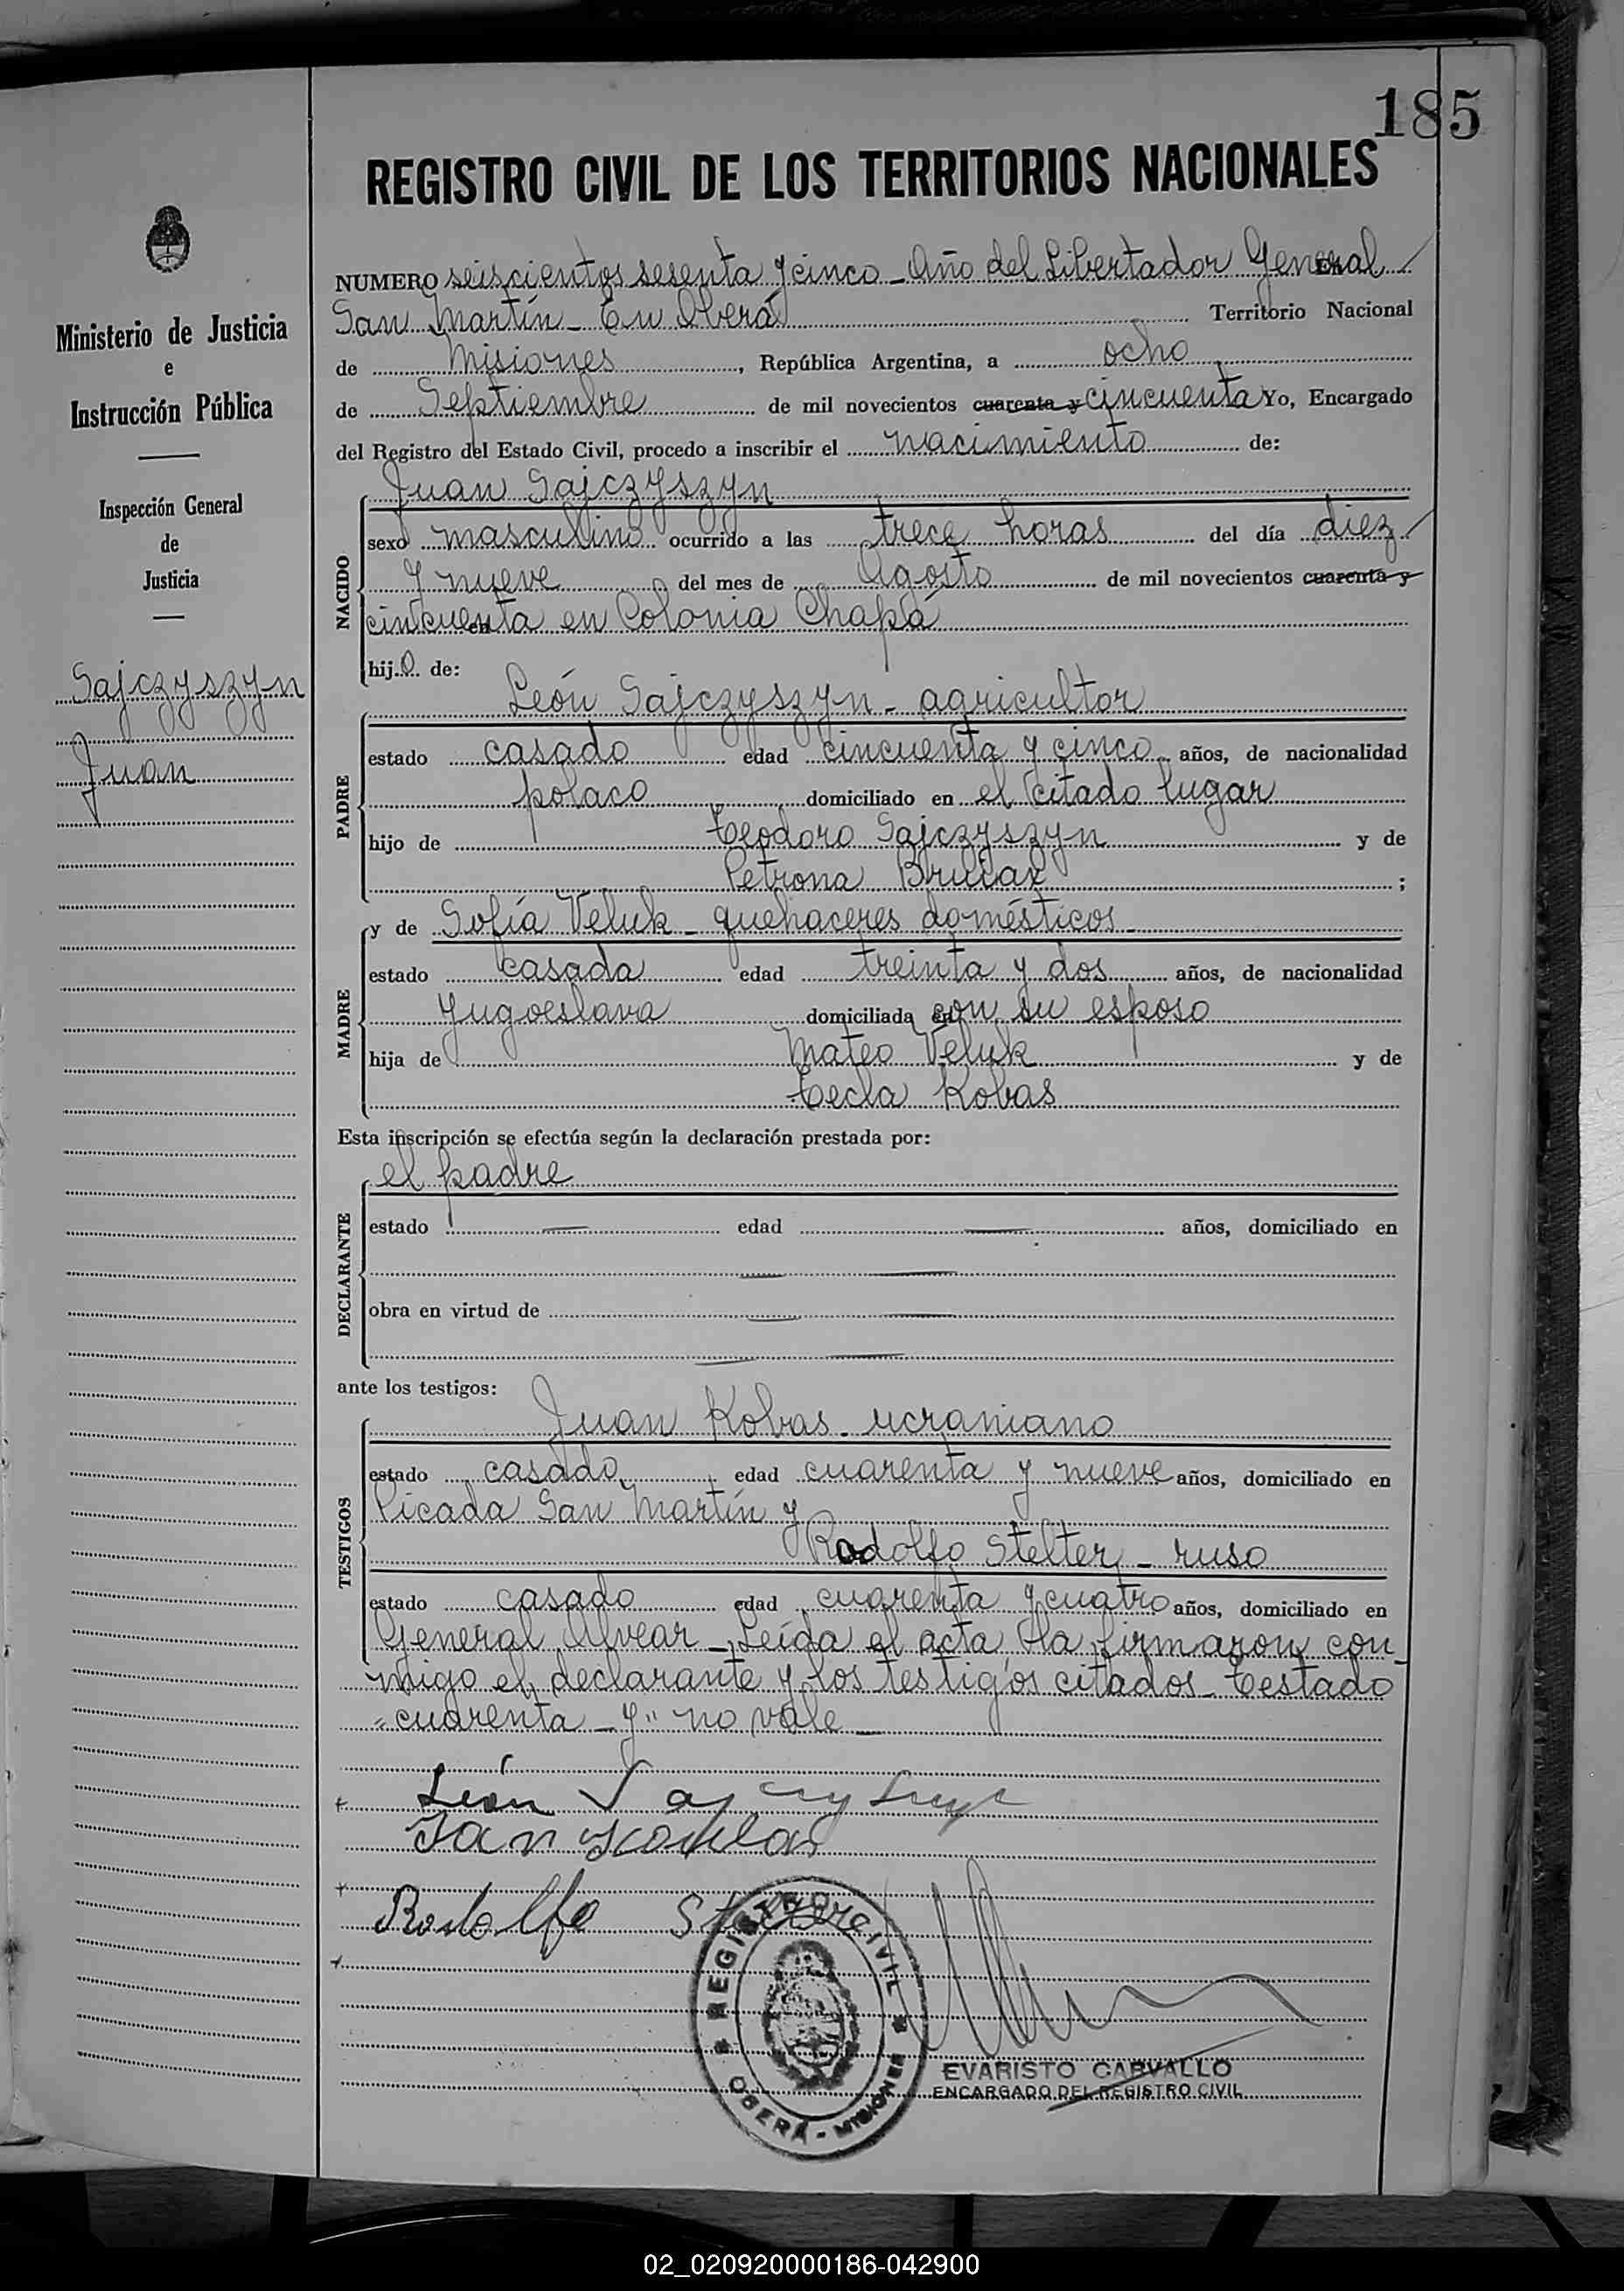 185
REGISTRO CIVIL DE LOS TERRITORIOS NACIONALES
Ministerio de Justicia
e
Instrucción Pública
Inspección General
de
Justicia
Sajczyszyn
Juan
NUMERO seiscientos sesenta y cinco _ Año del Libertador General En
San Martín _ En Oberá Territorio Nacional
de Misiones, República Argentina, a ocho
de Septiembre de mil novecientos cuarenta y cincuenta Yo, Encargado
del Registro del Estado Civil, procedo a inscribir el nacimiento de:
NACIDO
Juan Sajczyszyn
sexo masculino ocurrido a las trece horas del día diez
y nueve del mes de Agosto de mil novecientos cuarenta y
cincuenta en Colonia Chapá
hijo de:
PADRE
León Sajczyszyn _ agricultor
estado casado edad cincuenta y cinco años, de nacionalidad
polaco domiciliado en el citado lugar
hijo de Teodoro Sajczyszyn y de
Petrona ;
MADRE
y de Sofía Veluk _ quehaceres domésticos _
estado casada edad treinta y dos años, de nacionalidad
Yugoeslava domiciliada en con su esposo
hija de Mateo Veluk y de
Tecla Kobas
Esta inscripción se efectúa según la declaración prestada por:
DECLARANTE
el padre
estado — edad — años, domiciliado en
— —
obra en virtud de — —
— —
ante los testigos:
TESTIGOS
Juan Kobas _ ucraniano
estado casado edad cuarenta y nueve años, domiciliado en
Picada San Martín y
Rodolfo Stelter _ ruso
estado casado edad cuarenta y cuatro años, domiciliado en
General Alvear _ Leída el acta la firmaron con_
migo el declarante y los testigos citados _ Testado
"cuarenta _ y" no vale _
León
Jan
Rodolfo
REGISTRO CIVIL
OBERÁ - MISIONES
EVARISTO CARVALLO
ENCARGADO DEL REGISTRO CIVIL
02_020920000186-042900